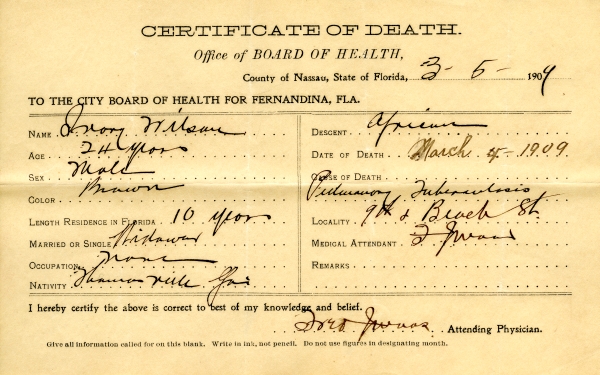 CERTIFICATE OF DEATH.
Office of BOARD OF HEALTH,
County of Nassau, State of Florida, 3 - 5 - 1909
TO THE CITY BOARD OF HEALTH FOR FERNANDINA, FLA.
NAME Ivory Wilson
AGE 24 years
SEX Male
COLOR Brown
LENGTH RESIDENCE IN FLORIDA 10 years
MARRIED OR SINGLE Widower
OCCUPATION none
NATIVITY Thomasville Ga
DESCENT African
DATE OF DEATH March 4 - 1909
CAUSE OF DEATH
Pulmonary Tuberculosis
LOCALITY 9th & Beech St
MEDICAL ATTENDANT
REMARKS
I hereby certify the above is correct to best of my knowledge and belief.
Attending Physician.
Give all information called for on this blank. Write in ink, not pencil. Do not use figures in designating month.